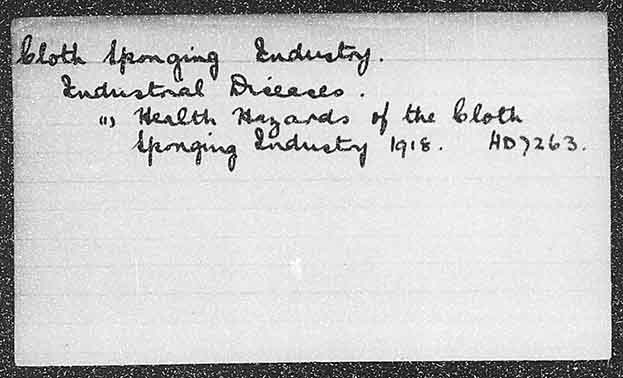 Cloth Sponging Industry.
Industrial Diseases.
" Health Hazards of the Cloth
Sponging Industry 1918. HD7263.